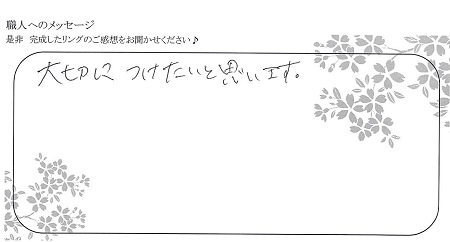 職人へのメッセージ
是非 完成したリングのご感想をお聞かせください♪
大切に つけたいと思います。